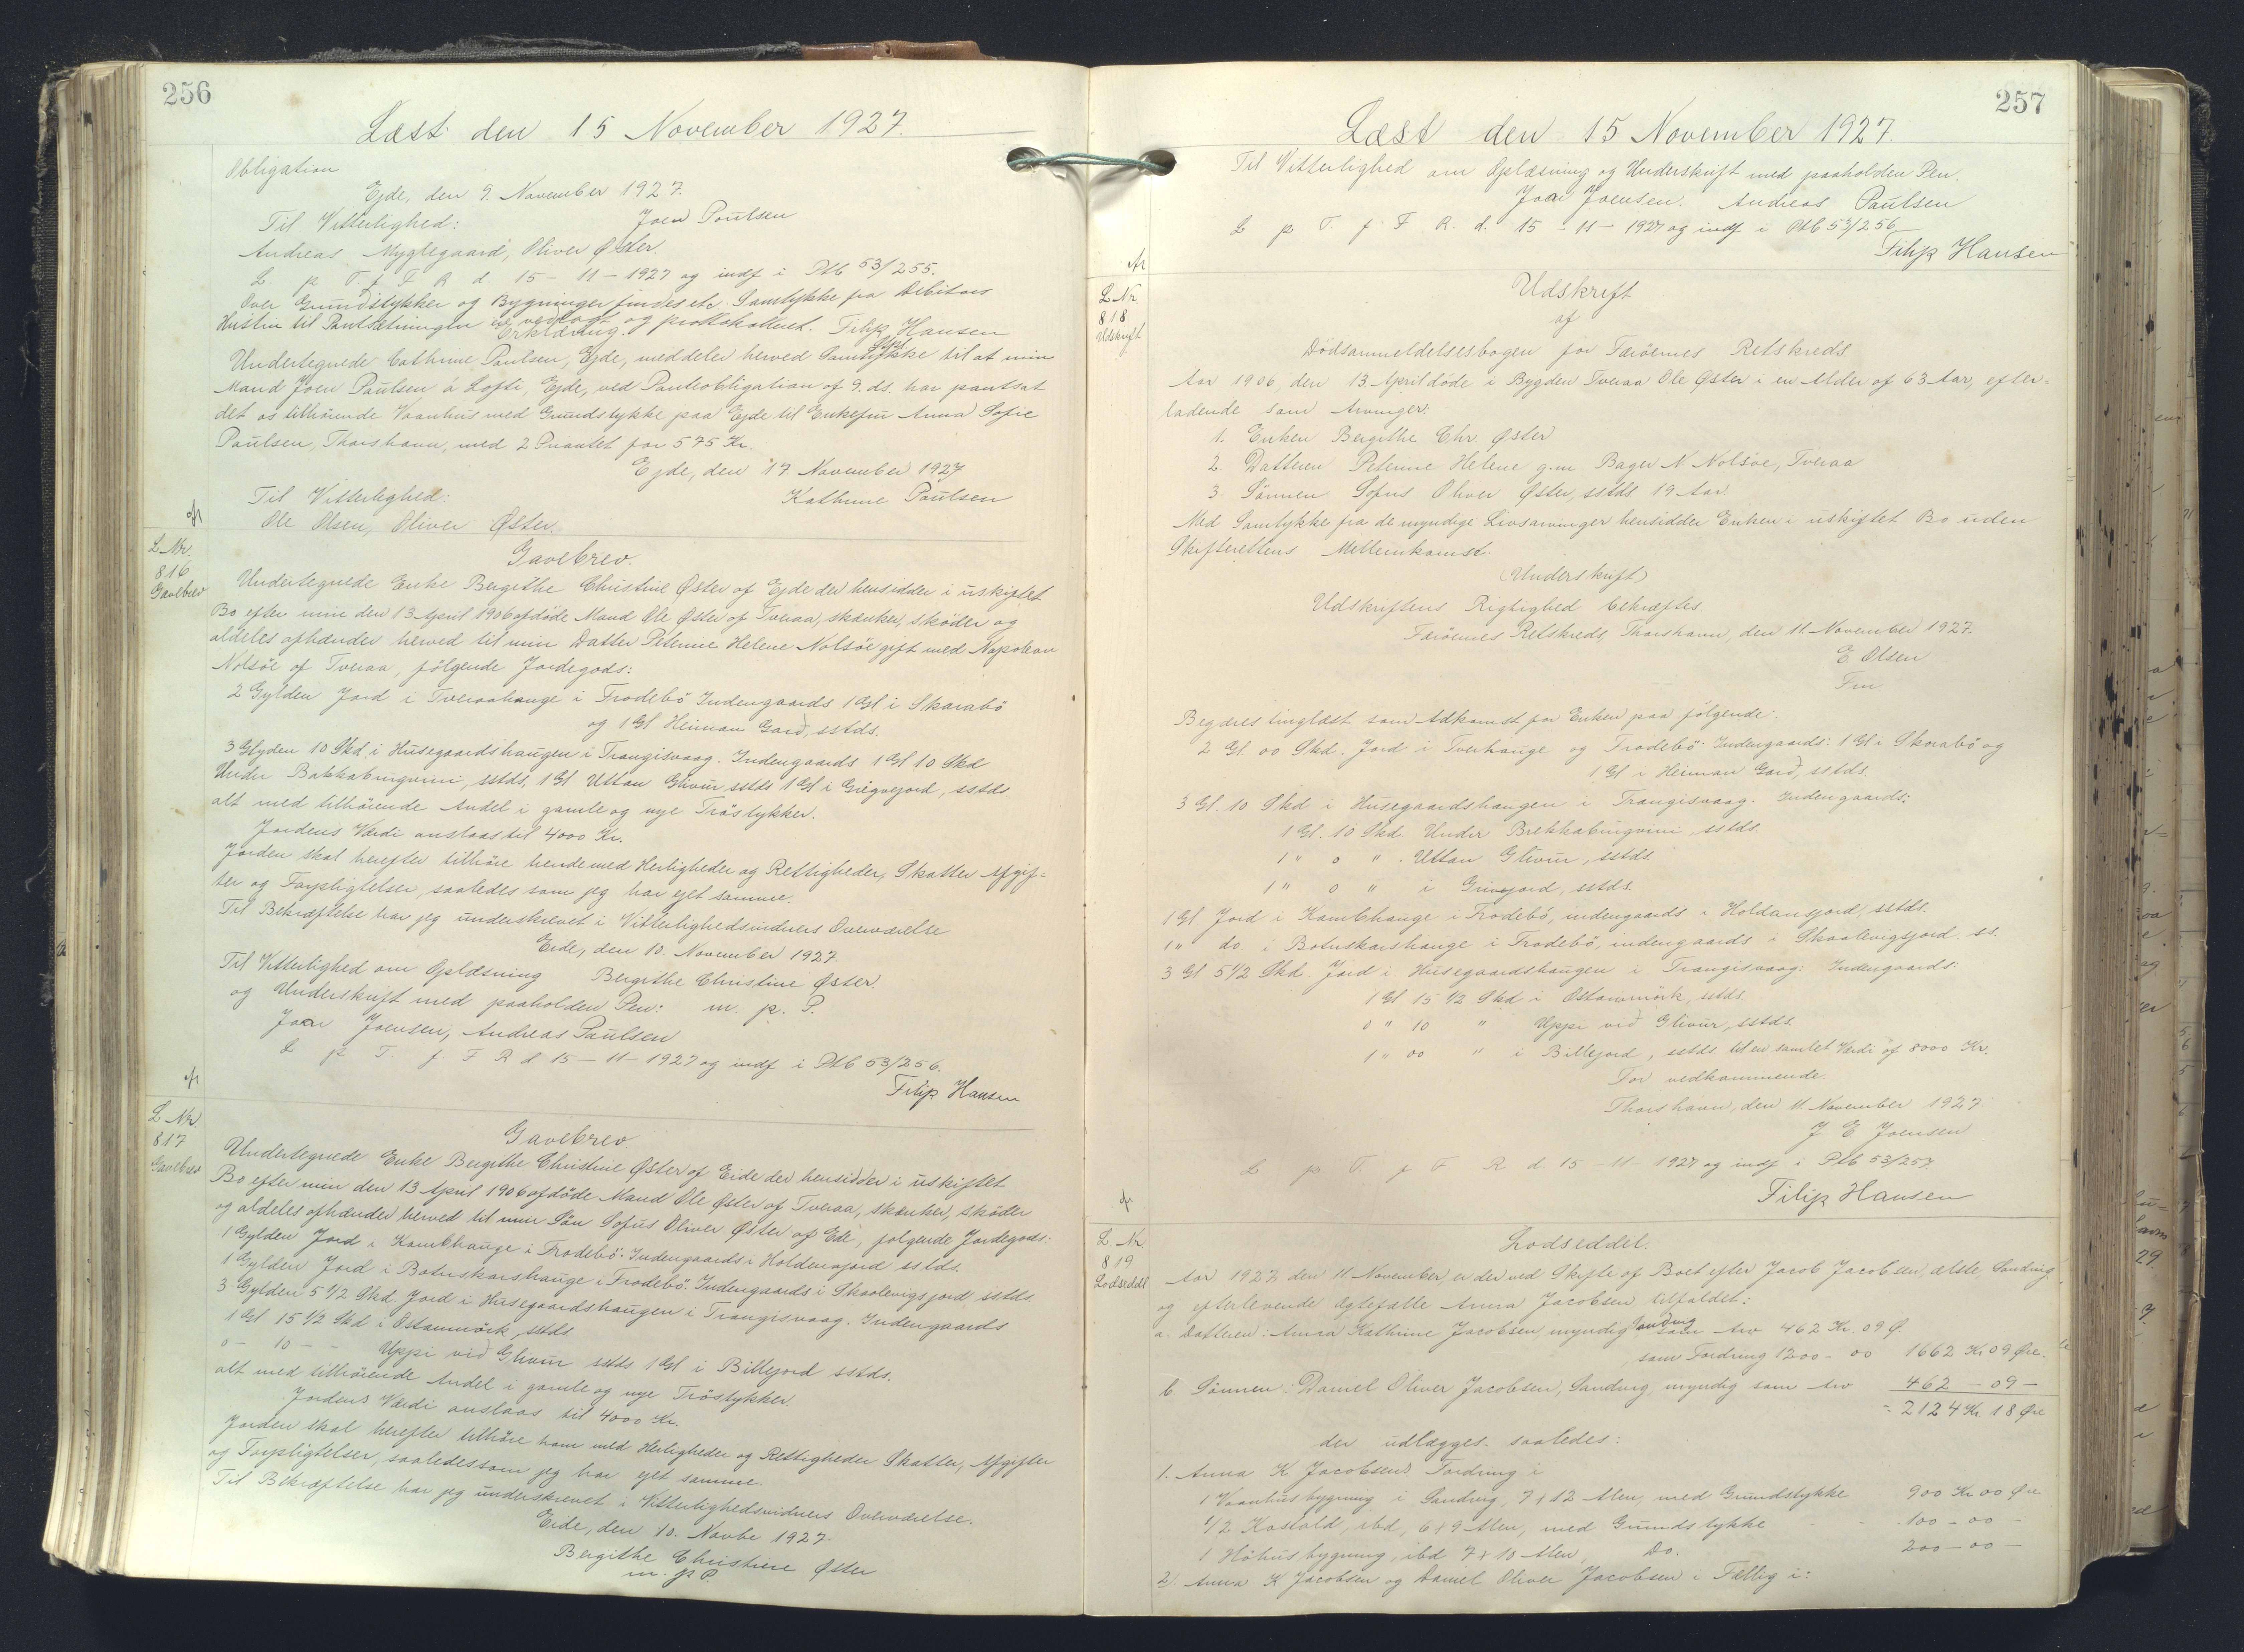 256
Læst den 15 November 1927.
Obligation
Ejde, den 9. November 1927.
Til Vitterlighed: Joen Poulsen
Andreas Myglegaard, Oliver Øster.
L. p T f F R d. 15 - 11 - 1927 og indf i Ptb 53/255.
Over Grundstykker og Bygninger findes etc. Samtykke fra Debitors
Hustru til Pantsætningen er vedlagt og protokolleret. Filip Hansen
Erklæring. Stpl
Undertegnede Cathrine Poulsen, Ejde, meddeler herved Samtykke til at min
Mand Joen Poulsen á Lofti, Ejde, ved Panteobligation af 9. ds. har pantsat
det os tilhörende Vaanhus med Grundstykke paa Ejde til Enkefru Anna Sofie
Poulsen, Thorshavn, med 2 Prioritet for 575 Kr.
Ejde, den 17. November 1927
Til Vitterlighed: Kathrine Poulsen
Ole Olsen, Oliver Øster.
afr
L. Nr.
816
Gavebrev
Gavebrev.
Undertegnede Enke Bergithe Christine Øster af Ejde der hensidder i uskiftet
Bo efter min den 13 April 1906 afdöde Mand Ole Øster af Tveraa, skænker, sköder og
aldeles afhænder herved til min Datter Petrine Helene Nolsöe gift med Napoleon
Nolsöe af Tveraa, fölgende Jordegods:
2 Gylden Jord i Tveraahauge i Frodebö Indengaards 1 Gl i Skarabö
og 1 Gl Heiman Gard, sstds.
3 Glyden 10 Skd i Husegaardshaugen i Trangisvaag. Indengaards 1 Gl 10 Skd
Under Bakkabingvini, sstds, 1 Gl Uttan Glivur sstds 1 Gl i Gregvejord, sstds
alt med tilhörende Andel i gamle og nye Tröstykker.
Jordens Værdi anslaas til 4000 Kr.
Jorden skal herefter tilhöre hende med Herligheder og Rettigheder, Skatter Afgif=
ter og Forpligtelser, saaledes som jeg har ejet samme.
Til Bekræftelse har jeg underskrevet i Vitterlighedsvidners Overværelse
Eide, den 10. November 1927.
Til Vitterlighed om Oplæsning Bergithe Christine Øster.
og Underskrift med paaholden Pen: m. p. P.
Joen Joensen, Andreas Paulsen
L p T. f F R d 15 - 11 - 1927 og indf i Ptb 53/256.
Filip Hansen
afr
L. Nr.
817
Gavebrev
Gavebrev
Undertegnede Enke Bergithe Christine Øster af Eide der hensidder i uskiftet
Bo efter min den 13 April 1906 afdöde Mand Ole Øster af Tveraa, skænker, sköder
og aldeles afhænder herved til min Sön Sofus Oliver Øster af Ede, fölgende Jordegods:
1 Gylden Jord i Kambhauge i Frodebö. Indengaards i Holdansjord sstds.
1 Gylden Jord i Botnskarshauge i Frodebö. Indengaards i Skaalevigsjord sstds.
3 Gylden 5 1/2 Skd. Jord i Husegaardshaugen i Trangisvaag. Indengaards
1 Gl 15 1/2 Skd i Ostammörk, sstds
0 - 10 - - Uppi vid Glivur sstds 1 Gl i Billejord sstds.
alt med tilhörende Andel i gamle og nye Tröstykker.
Jordens Værdi anslaas til 4000 Kr.
Jorden skal herefter tilhöre ham med Herligheder og Rettigheder Skatter, Afgifter
og Forpligtelser, saaledes som jeg har ejet samme.
Til Bekræftelse har jeg underskrevet i Vitterlighedsvidners Overværelse.
Eide, den 10. Novbr 1927.
Bergithe Christine Øster
m. p P.
257
Læst den 15 November 1927.
Til Vitterlighed om Oplæsning og Underskrift med paaholden Pen.
Joen Joensen. Andreas Paulsen
L p T. f F R. d. 15 - 11 - 1927 og indf i Ptb 53/256
Filip Hansen
afr
L Nr.
818
Udskrift
Udskrift
af
Dödsanmeldelsesbogen for Færöernes Retskreds
Aar 1906, den 13. April döde i Bygden Tveraa Ole Øster i en Alder af 63 Aar, efter=
ladende som Arvinger:
1. Enken Bergithe Chr. Øster
2. Datteren Petrine Helene g.m. Bager N. Nolsöe, Tveraa
3. Sönnen Sofus Oliver Øster, sstds 19 Aar.
Med Samtykke fra de myndige Livsarvinger hensidder Enken i uskiftet Bo uden
Skifterettens Mellemkomst.
(Underskrift)
Udskriftens Rigtighed bekræftes.
Færöernes Retskreds, Thorshavn, den 11. November 1927.
E. Olsen
Fm
Begæres tinglæst som Adkomst for Enken paa fölgende:
2 Gl. 00 Skd. Jord i Tverhauge og Frodebö Indengaards: 1 Gl i Skorabö og
1 Gl i Heiman Gard, sstds.
3 Gl. 10 Skd i Husegaardshaugen i Trangisvaag. Indengaards:
1 Gl. 10 Skd Under Brekkabingvini sstds
1 " 0 " . Uttan Glivur, sstds.
1 " 0 " i Grivejord, sstds.
1 Gl Jord i Kambhauge i Frodebö, indengaards i Holdansjord, sstds.
1 " do. i Botnskarshauge i Frodebö, indengaards i Skaalevigsjord. ss.
3 Gl 5 1/2 Skd. Jord i Husegaardshaugen i Trangisvaag: Indengaards:
1 Gl 15 1/2 Skd i Ostammörk, sstds.
0 " 10 " Uppi vid Glivur, sstds.
1 " 00 " i Billejord, sstds. til en samlet Værdi af 8000 Kr.
For vedkommende
Thorshavn, den 11 November 1927.
J E Joensen
L p T. f F R d 15 - 11 - 1927 og indf i Ptb 53/257.
Filip Hansen
afr
L. Nr.
819
Lodseddel
Lodseddel.
Aar 1927 den 11. November, er der ved Skifte af Boet efter Jacob Jacobsen, ælste, Sandvig
og efterlevende Ægtefælle Anna Jacobsen tilfaldet:
Sandvig
a. Datteren: Anna Kathrine Jacobsen, myndig som Arv 462 Kr. 09 Ø.
som Fordring 1200 - 00 1662 Kr 09 Øre.
b. Sönnen: Daniel Oliver Jacobsen, Sandvig, myndig som Arv 462 - 09 -
= 2124 Kr. 18 Øre
der udlægges saaledes:
1. Anna K Jacobsens Fordring i
1 Vaanhusbygning i Sandvig, 7 x 12 Alen, med Grundstykke 900 Kr 00 Øre
1/2 Kostald, ibd, 6 x 9 Alen, med Grundstykke - - 100 - 00 -
1 Höhusbygning, ibd 7 x 10 Alen Do. 200 - 00 -
2). Anna K Jacobsen og Daniel Oliver Jacobsen i Fællig i: